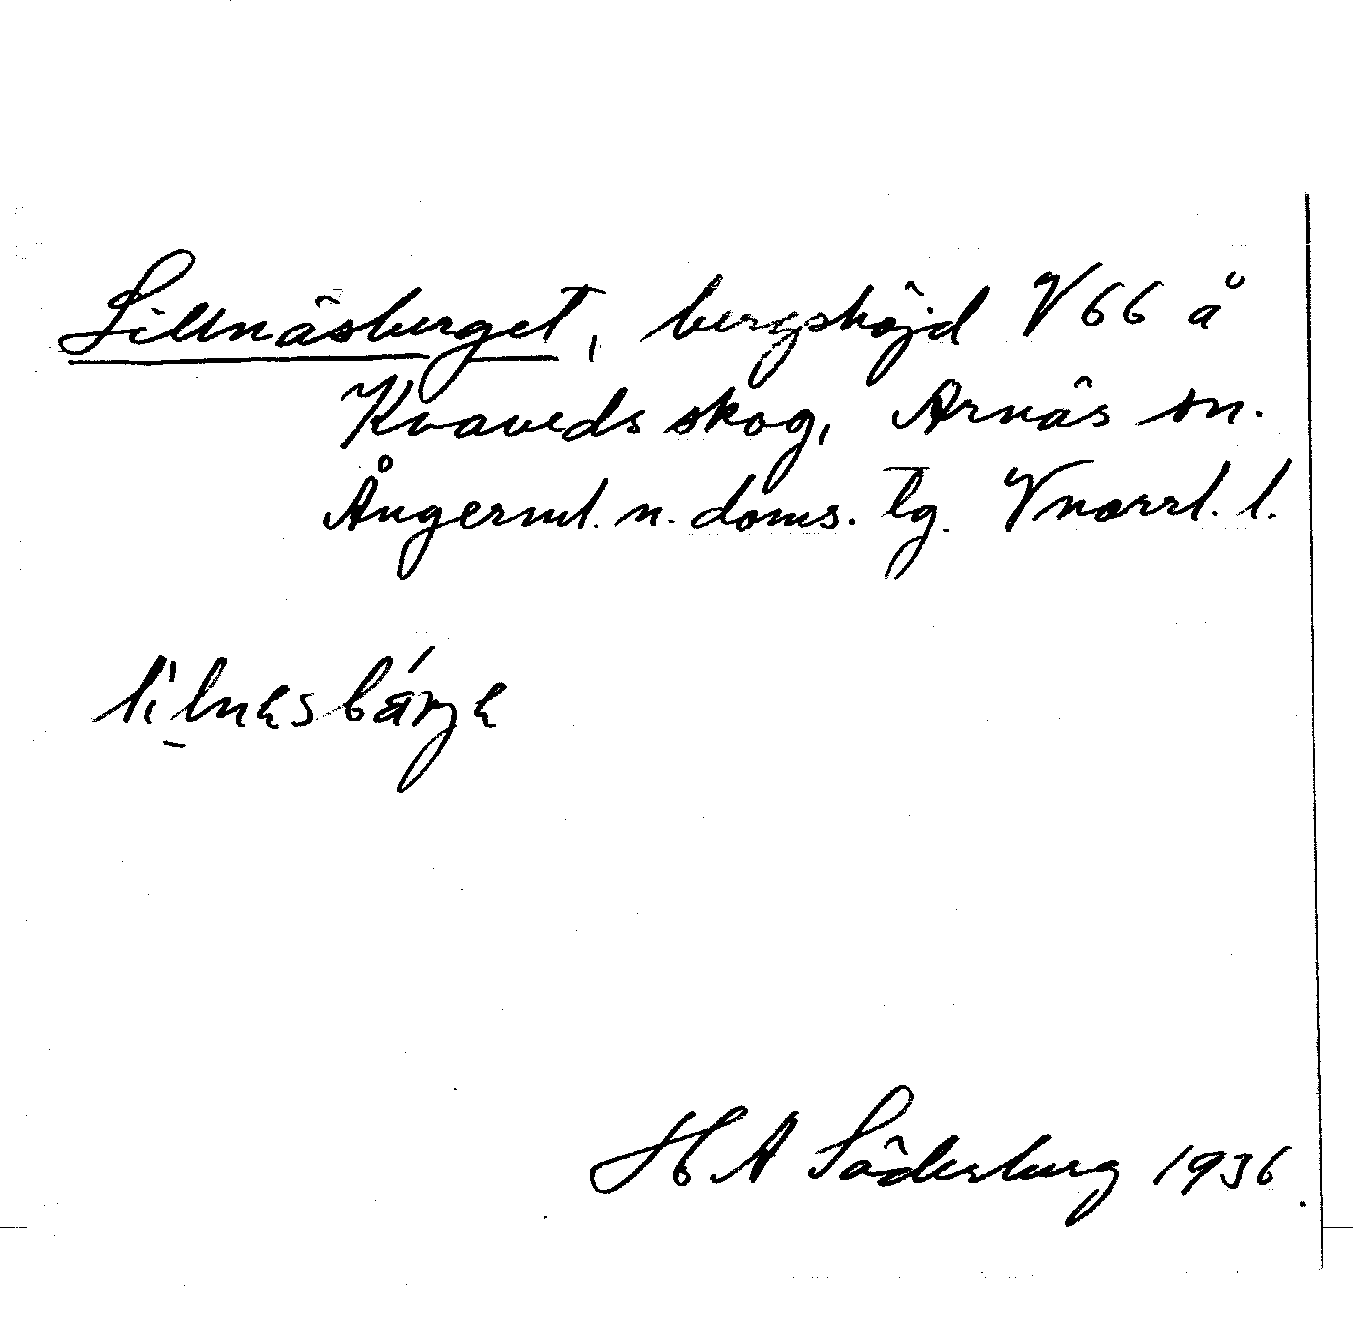 Lillnäsberget, bergshöjd V 66 å
Kvaveds skog, Arnäs sn.
Ångerml. n. doms. tg. Vnorrl. l.
H A Söderberg 1936.